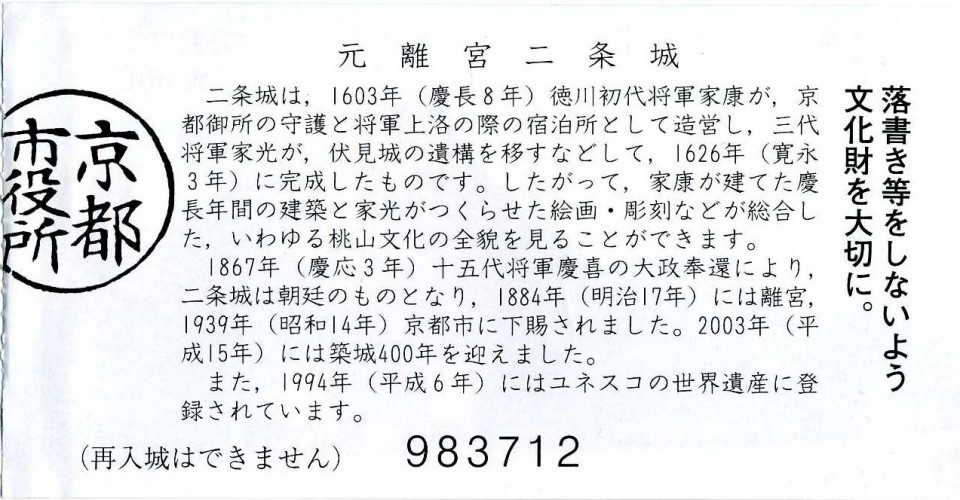 元離宮二条城
二条城は，1603年（慶長８年）徳川初代将軍家康が，京
都御所の守護と将軍上洛の際の宿泊所として造営し，三代
将軍家光が，伏見城の遺構を移すなどして，1626年（寛永
３年）に完成したものです。したがって，家康が建てた慶
長年間の建築と家光がつくらせた絵画・彫刻などが総合し
た，いわゆる桃山文化の全貌を見ることができます。
1867年（慶応３年）十五代将軍慶喜の大政奉還により，
二条城は朝廷のものとなり，1884年（明治17年）には離宮，
1939年（昭和14年）京都市に下賜されました。2003年（平
成15年）には築城400年を迎えました。
また，1994年（平成６年）にはユネスコの世界遺産に登
録されています。
（再入城はできません）
983712
落書き等をしないよう
文化財を大切に。
京都
市役所